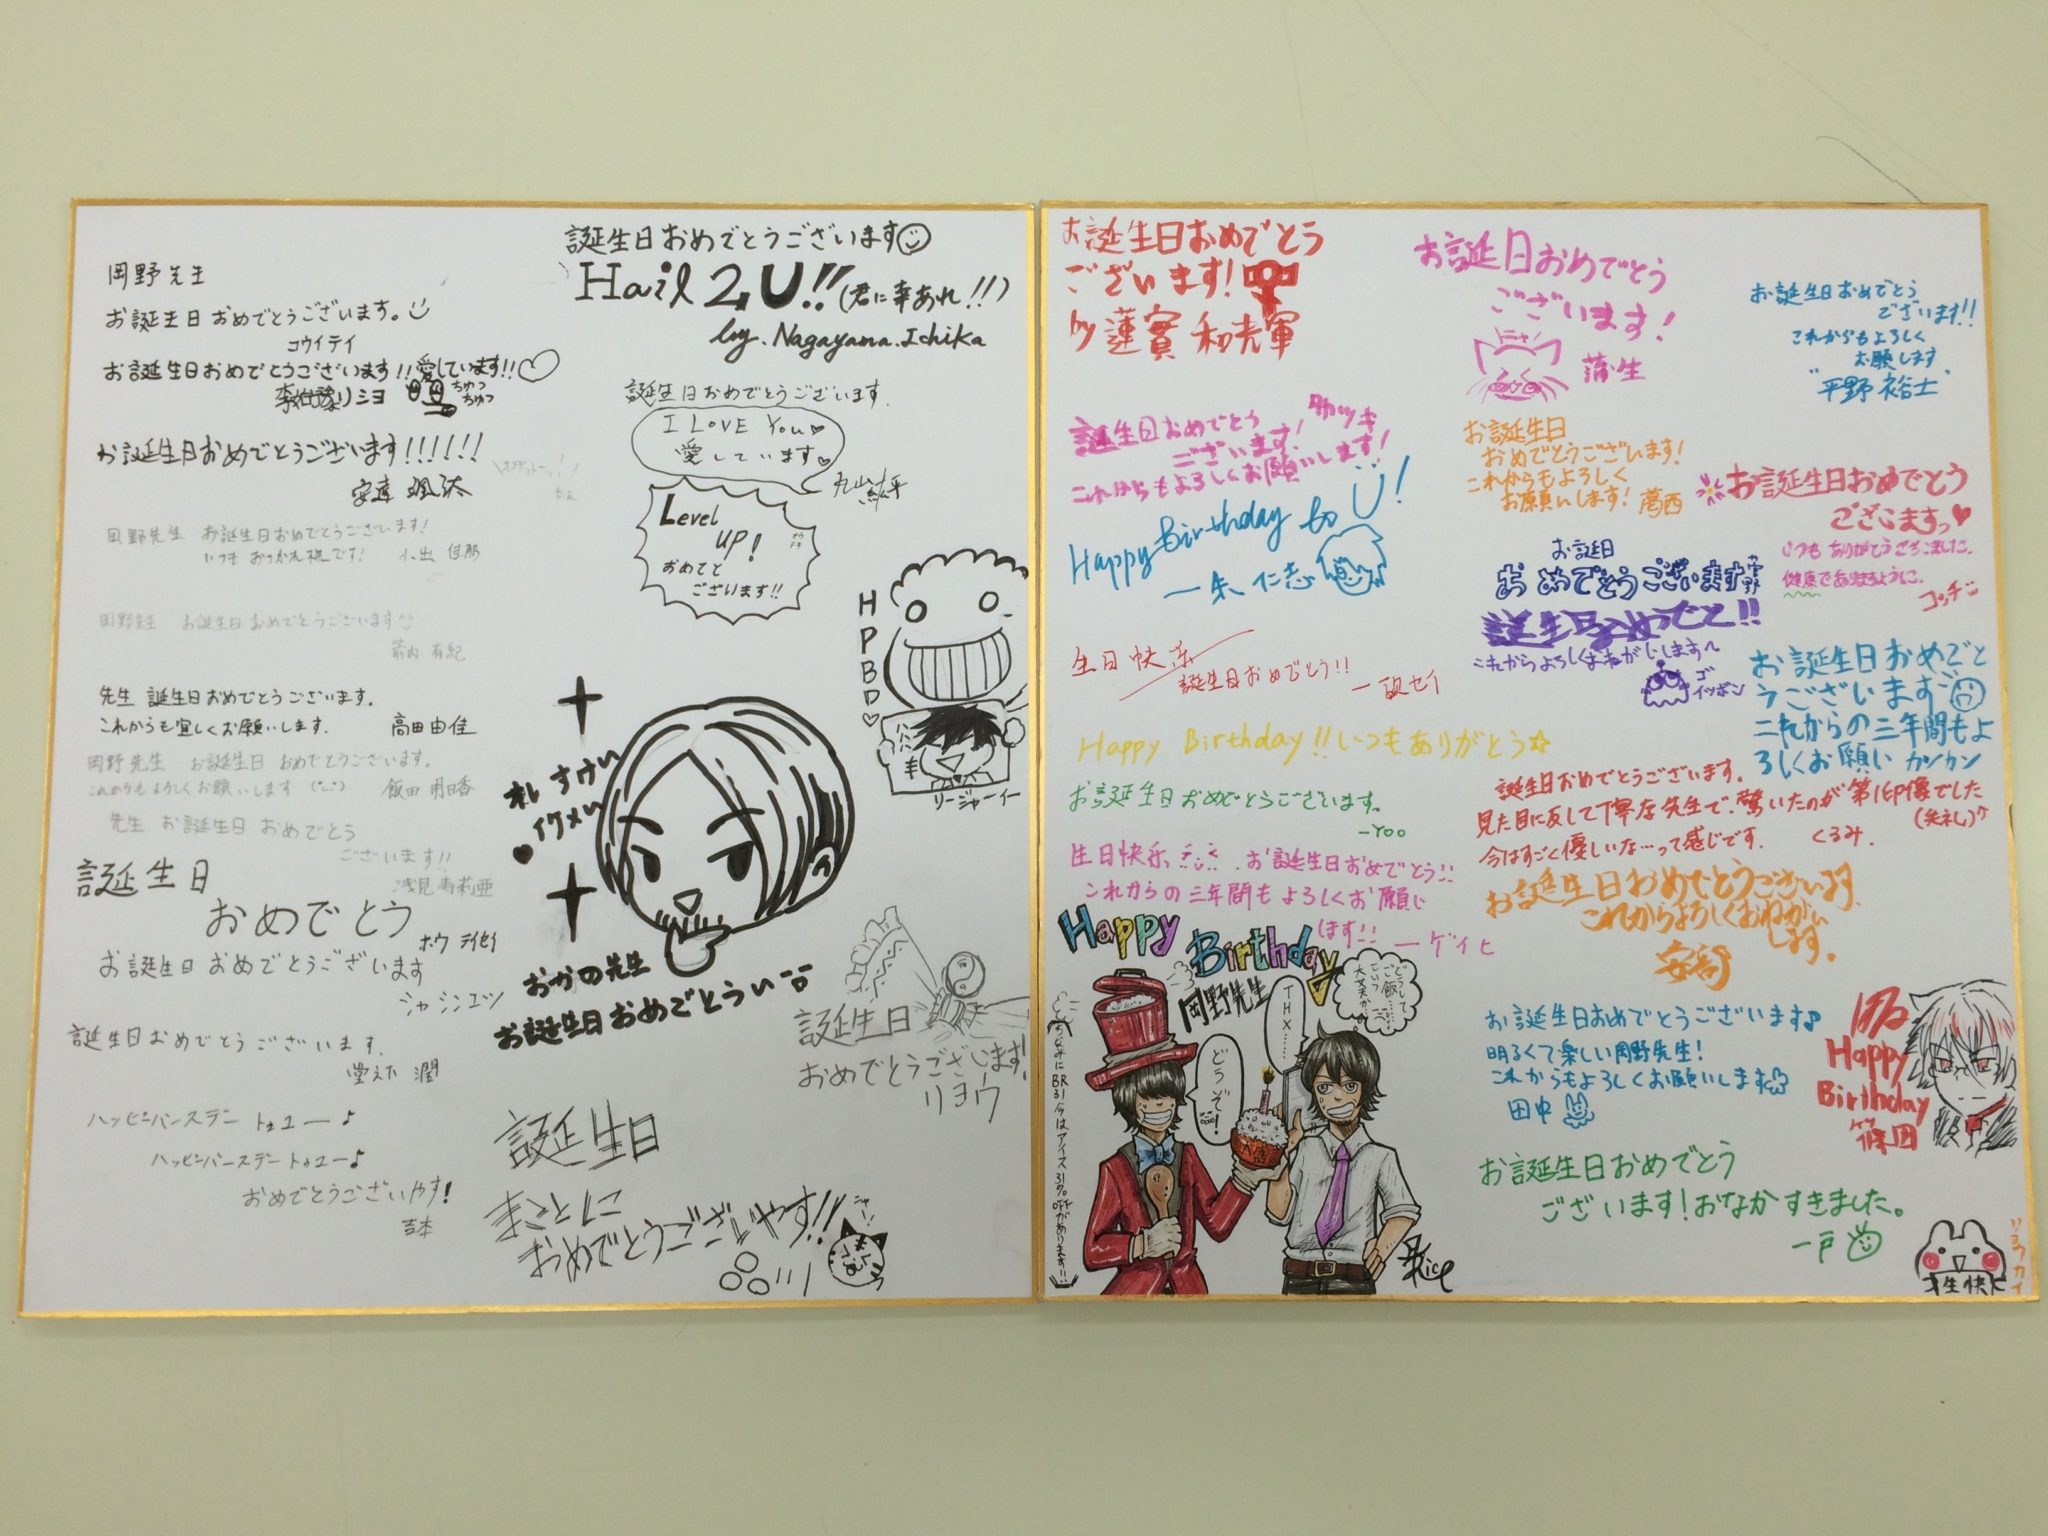 岡野先生
お誕生日おめでとうございます。
コウイテイ
お誕生日おめでとうございます!!愛しています!!
リショ
ちゅっ
ちゅっ
お誕生日おめでとうございます!!!!!!
安達 颯汰
岡野先生 お誕生日おめでとうございます!
いつもおつかれ様です! 小出 佳那
岡野先生 お誕生日おめでとうございます
箭内 有紀
先生 誕生日おめでとうございます。
これからも宜しくお願いします。 高田由佳
岡野先生 お誕生日 おめでとうございます。
これからもよろしくお願いします 飯田 明日香
先生 お誕生日 おめでとう
ございます!!
浅見 寿莉亜
誕生日
おめでとう
ホウ テイセイ
お誕生日 おめでとうございます
シャ シンエツ
誕生日おめでとうございます。
堂元 潤
ハッピーバースデー トゥユー♪
ハッピーバースデートゥユー♪
おめでとうございやす!
吉本
誕生日おめでとうございます
Hail 2 U!!(君に幸あれ!!)
by. Nagayama. Ichika
誕生日おめでとうございます.
I LOVE You
愛しています
丸山 紘平
Level
UP!
おめでと
ございます!!
HPBD
リージャーイー
イケメン
おかの先生
お誕生日おめでとうい
誕生日
おめでとうございます!
リョウ
誕生日
おめでとうございやす!!!
ニャー!
お誕生日おめでとう
ございます!
by 蓮實 和輝
誕生日おめでとう
ございます! タカツキ
これからもよろしくお願いします!
Happy Birthday to U!
一朱 仁志
生日快乐
誕生日おめでとう!!
Happy Birthday!!いつもありがとう☆
お誕生日おめでとうございます。
-Yoo
生日快乐 お誕生日おめでとう!!
これからの三年間もよろしくお願い
します!!
ーゲイヒ
Happy
Birthday
岡野先生
THX……
どうぞ!
どうしてご飯……
こいつ大丈夫か
ちなみにBR31今はアイス31%OFFがあります!!
Rice
お誕生日おめでとう
ございます!
ニャ
蒲生
お誕生日おめでとう
ございます!!
これからもよろしく
お願します
平野 裕士
お誕生日
おめでとうございます!
これからもよろしく
お願いします! 葛西
お誕生日おめでとう
ございますっ♥
いつもありがとうございました。
健康でありますように。
コッチ
お誕日
おめでとうございます
誕生日おめでと!!
これからよろしくおねがいします〜
ゴイッポン
お誕生日おめでと
うございます
これからの三年間もよ
ろしくお願い カンカン
誕生日おめでとうございます。
見た目に反して丁寧な先生で、驚いたのが第1印象でした
(失礼)
今はすごく優しいな…って感じです。 くるみ.
お誕生日おめでとうございます.
これからよろしくおねがい
します。
安部
お誕生日おめでとうございます♪
明るくて楽しい岡野先生!
これからもよろしくお願いします
田中
Happy
Birthday
篠田
お誕生日おめでとう
ございます!おなかすきました。
一戸
生快
リョウカイ